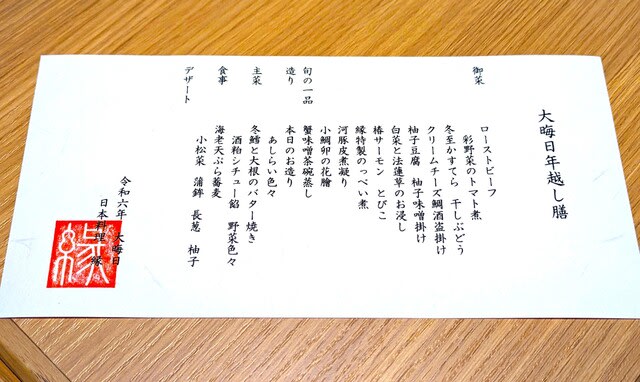 大晦日年越し膳
御菜
ローストビーフ
彩野菜のトマト煮
冬至かすてら 干しぶどう
クリームチーズ鯛酒盗掛け
柚子豆腐 柚子味噌掛け
白菜と法蓮草のお浸し
椿サーモン とびこ
縁特製のっぺい煮
河豚皮煮凝り
小鯛卯の花膾
旬の一品
蟹味噌茶碗蒸し
造り
本日のお造り
あしらい色々
主菜
冬鱈と大根のバター焼き
酒粕シチュー餡 野菜色々
食事
海老天ぷら蕎麦
小松菜 蒲鉾 長葱 柚子
デザート
令和六年 大晦日
日本料理 縁
縁